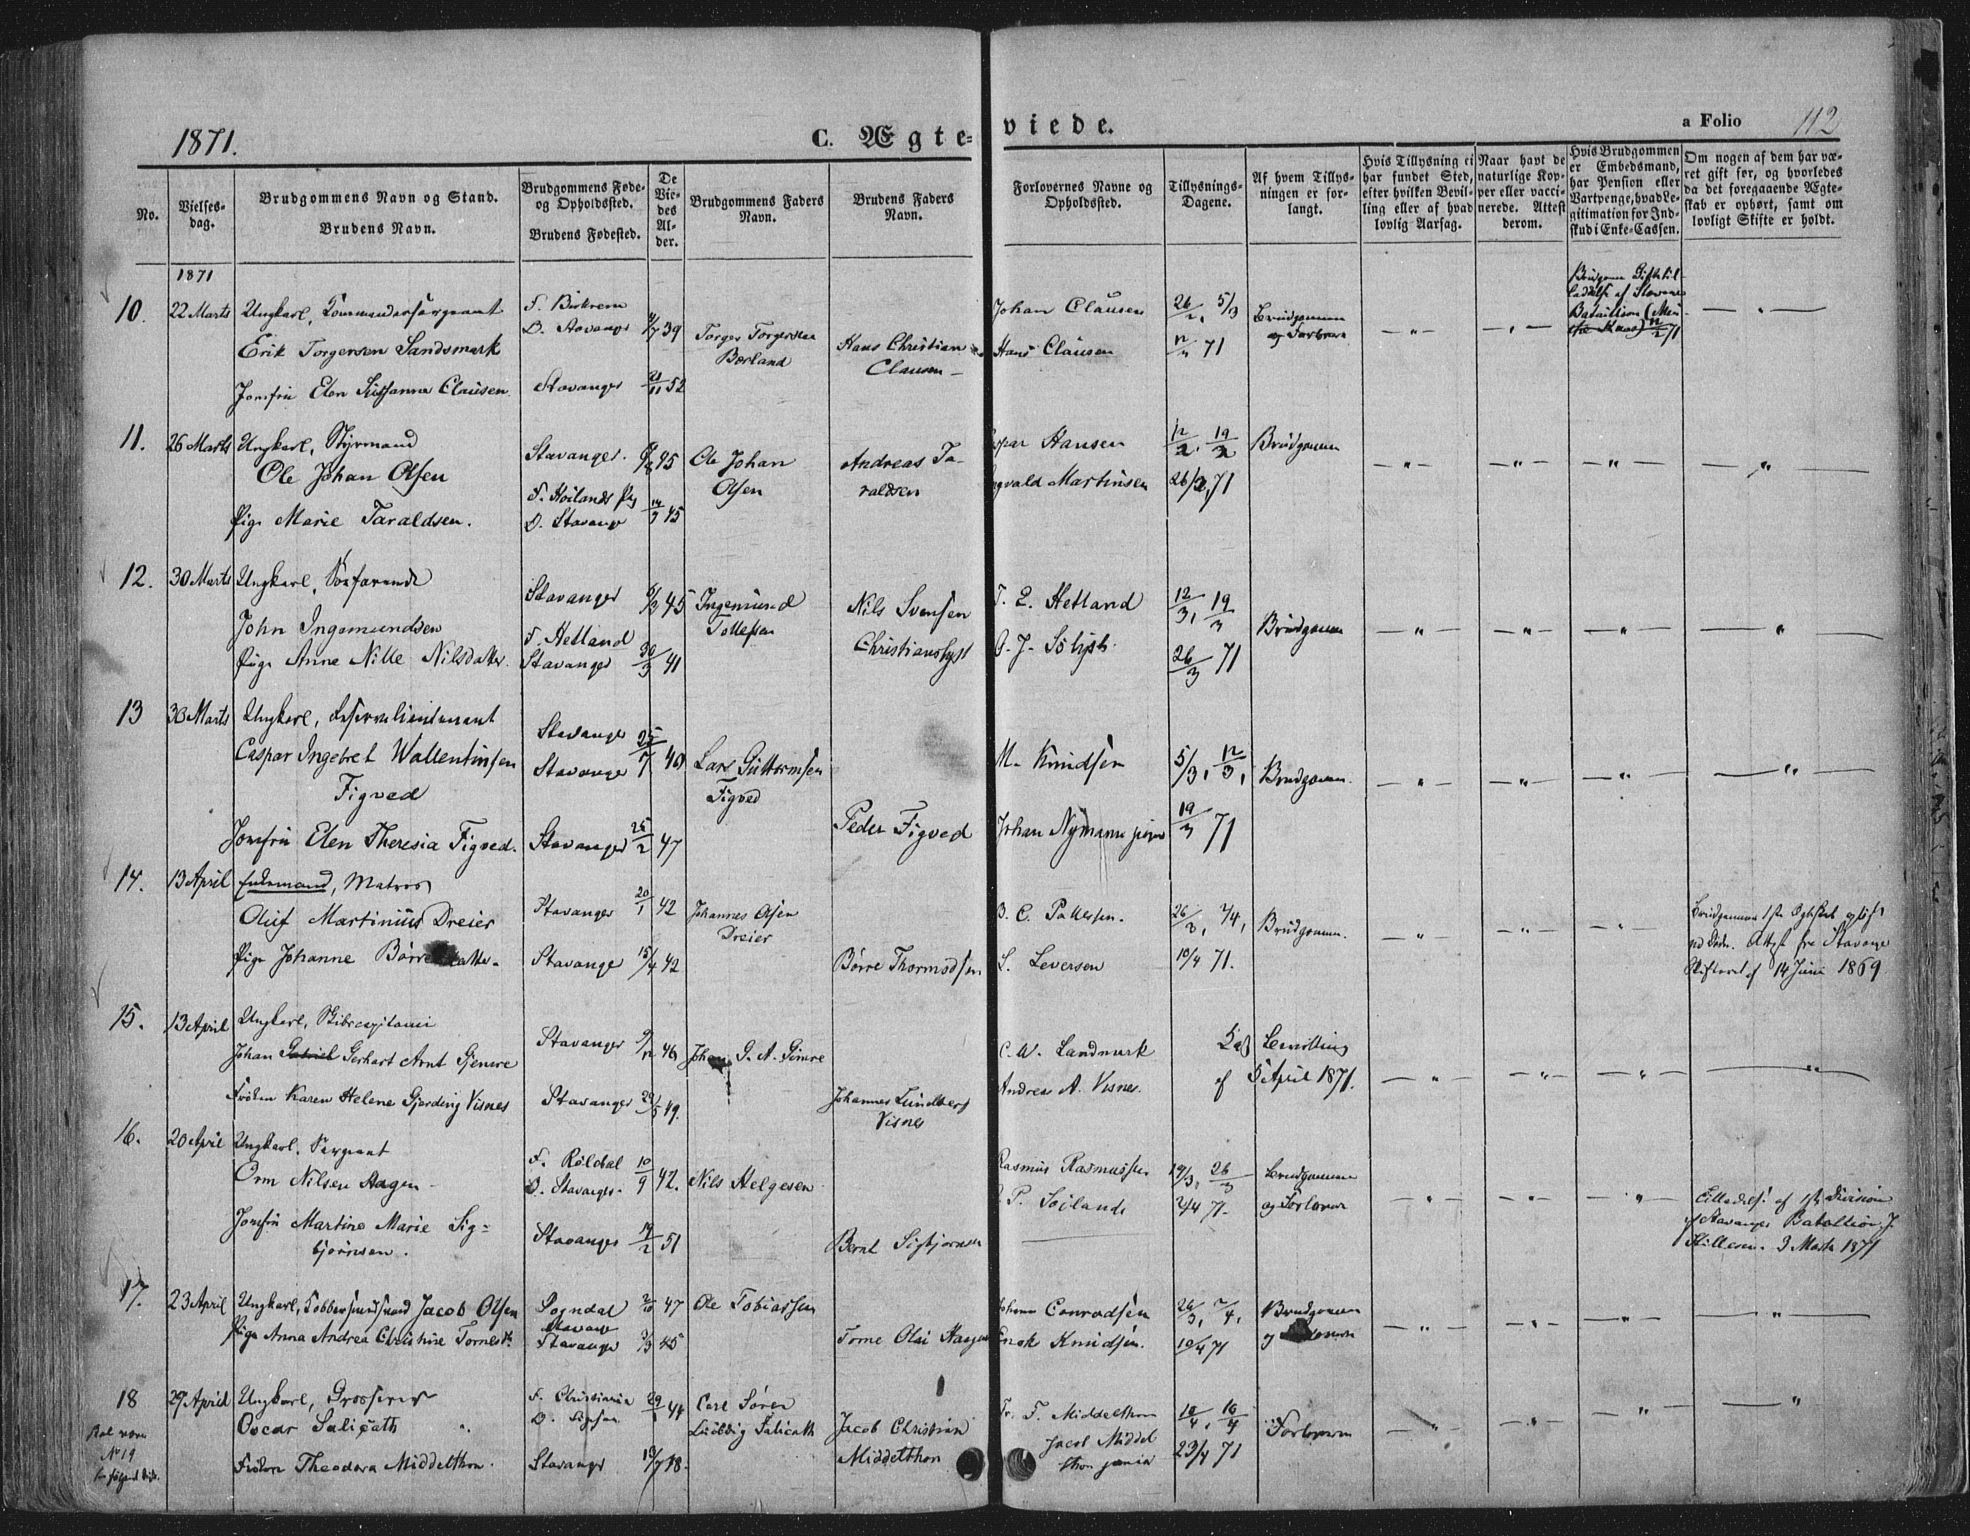 1871.
C. Ægte-
viede.
a Folio 112
No.
Vielses-
dag.
Brudgommens Navn og Stand.
Brudens Navn.
Brudgommens Føde-
og Opholdssted.
Brudens Fødested.
De
Vie-
des
Al-
der.
Brudgommens Faders
Navn.
Brudens Faders
Navn.
Forlovernes Navne og
Opholdssted.
Tillysnings-
Dagene.
Af hvem Tillys-
ningen er for-
langt.
Hvis Tillysning ei
har fundet Sted,
efter hvilken Bevil-
ling eller af hvad
lovlig Aarsag.
Naar havt de
naturlige Kop-
per eller vacci-
nerede. Attest
derom.
Hvis Brudgommen
er Embedsmand,
har Pension eller
Vartpenge, hvad Le-
gitimation for Ind-
skud i Enke-Cassen.
Om nogen af dem har væ-
ret gift før, og hvorledes
da det foregaaende Ægte-
skab er ophørt, samt om
lovligt Skifte er holdt.
1871
10. 22 Marts Ungkarl, Kommandersergeant
Erik Torgersen Sandsmark
Jomfru Elen Susanna Clausen
F. Birkrem
O. Stavanger 39
Stavanger 21/11 52
Torger Torgersen
Børland
Hans Christian
Clausen
Johan Clausen
Hans Clausen
26/2, 5/3
12/3 71
Brudgommen
og Forlover
11. 26 Marts Ungkarl, Styrmand
Ole Johan Olsen
Pige Marie Taraldsen.
Stavanger. 45
F. Høilands Prg
O. Stavanger 45
Ole Johan
Olsen
Andreas Ta-
raldsen
Hansen
Martinsen
12/2, 19/2
26/2 71
Brudgommen
12. 30 Marts Ungkarl, Søfarende
John Ingemundsen
Pige Anne Nille Nilsdatter.
Stavanger 6/3 45
F. Hetland
Stavanger 30/3 41
Ingemund
Tollefsen
Nils Svensen
Christianslyst
T. E. Hetland
O. J. Solyst.
12/3, 19/3
26/3 71
Brudgommen
13 30 Marts Ungkarl, Reservelieutenant
Caspar Ingebret Wallentinsen
Figved
Jomfru Elen Theresia Figved.
Stavanger
Stavanger 25/7 40
Stavanger 25/2 47
Lars Guttormsen
Figved
Peder Figved
M. Knudsen
Johan Nymann junior
5/3, 12/3,
19/3 71
Brudgommen.
14. 13 April Enkemand, Matros
Oluf Martinius Dreier
Pige Johanne Børresdatter
Stavanger 20/1 42
Stavanger 15/4 42
Johannes Olsen
Dreier
Børre Thormodsen
B. C. Pallesen.
L. Leversen
26/3, 2/4,
10/4 71.
Brudgommen.
Brudgommens 1ste Ægteskab opløst
ved Død. Attest fra Stavanger
Skifteret af 14 Juni 1869.
15. 13 April Ungkarl, Skibscapitain
Johan Gabriel Gerhart Arnt Gjemre
Frøken Karen Helene Gjerding Visnes
Stavanger 9/12 46
Stavanger 29/5 49.
Johan G. A. Gimre
Johannes Lundberg
Visnes
C. W. Landmark
Andrea A. Visnes.
Bevilling
af 5 April 1871.
16. 20 April Ungkarl, Sergeant
Orm Nilsen Hagen
Jomfru Martine Marie Sig-
bjørnsen.
F. Røldal
O. Stavanger 10/9 42.
Stavanger 19/2 51
Nils Helgesen
Bernt Sigbjørnsen
Rasmus Rasmussen
P. Soiland
19/3, 26/3
2/4 71.
Brudgommen
og Forlover
Tilladelse af 1ste Division
af Stavanger Bataillon J.
3 Marts 1871
17. 23 April Ungkarl, Kobbersmedsvend Jacob Olsen
Pige Anna Andrea Christine Tornesd.
Sogndal
Stavanger 47
Stavanger 45
Ole Tobiassen
Torne Olai Hagen
Johan Conradsen
Enok Knudsen.
26/3, 2/4,
10/4 71
Brudgommen
og
18 29 April Ungkarl, Grosserer
Oscar Salicath
Frøken Theodora Middelthon.
F. Christiania
O. 44
Stavanger 13/7 48.
Carl Søren
Ludvig Salicath
Jacob Christian
Middelthon
F. Middelthon
Jacob Middel
thon junior
10/4, 16/4
23/4 71
Forloveren
Skal være
No 19